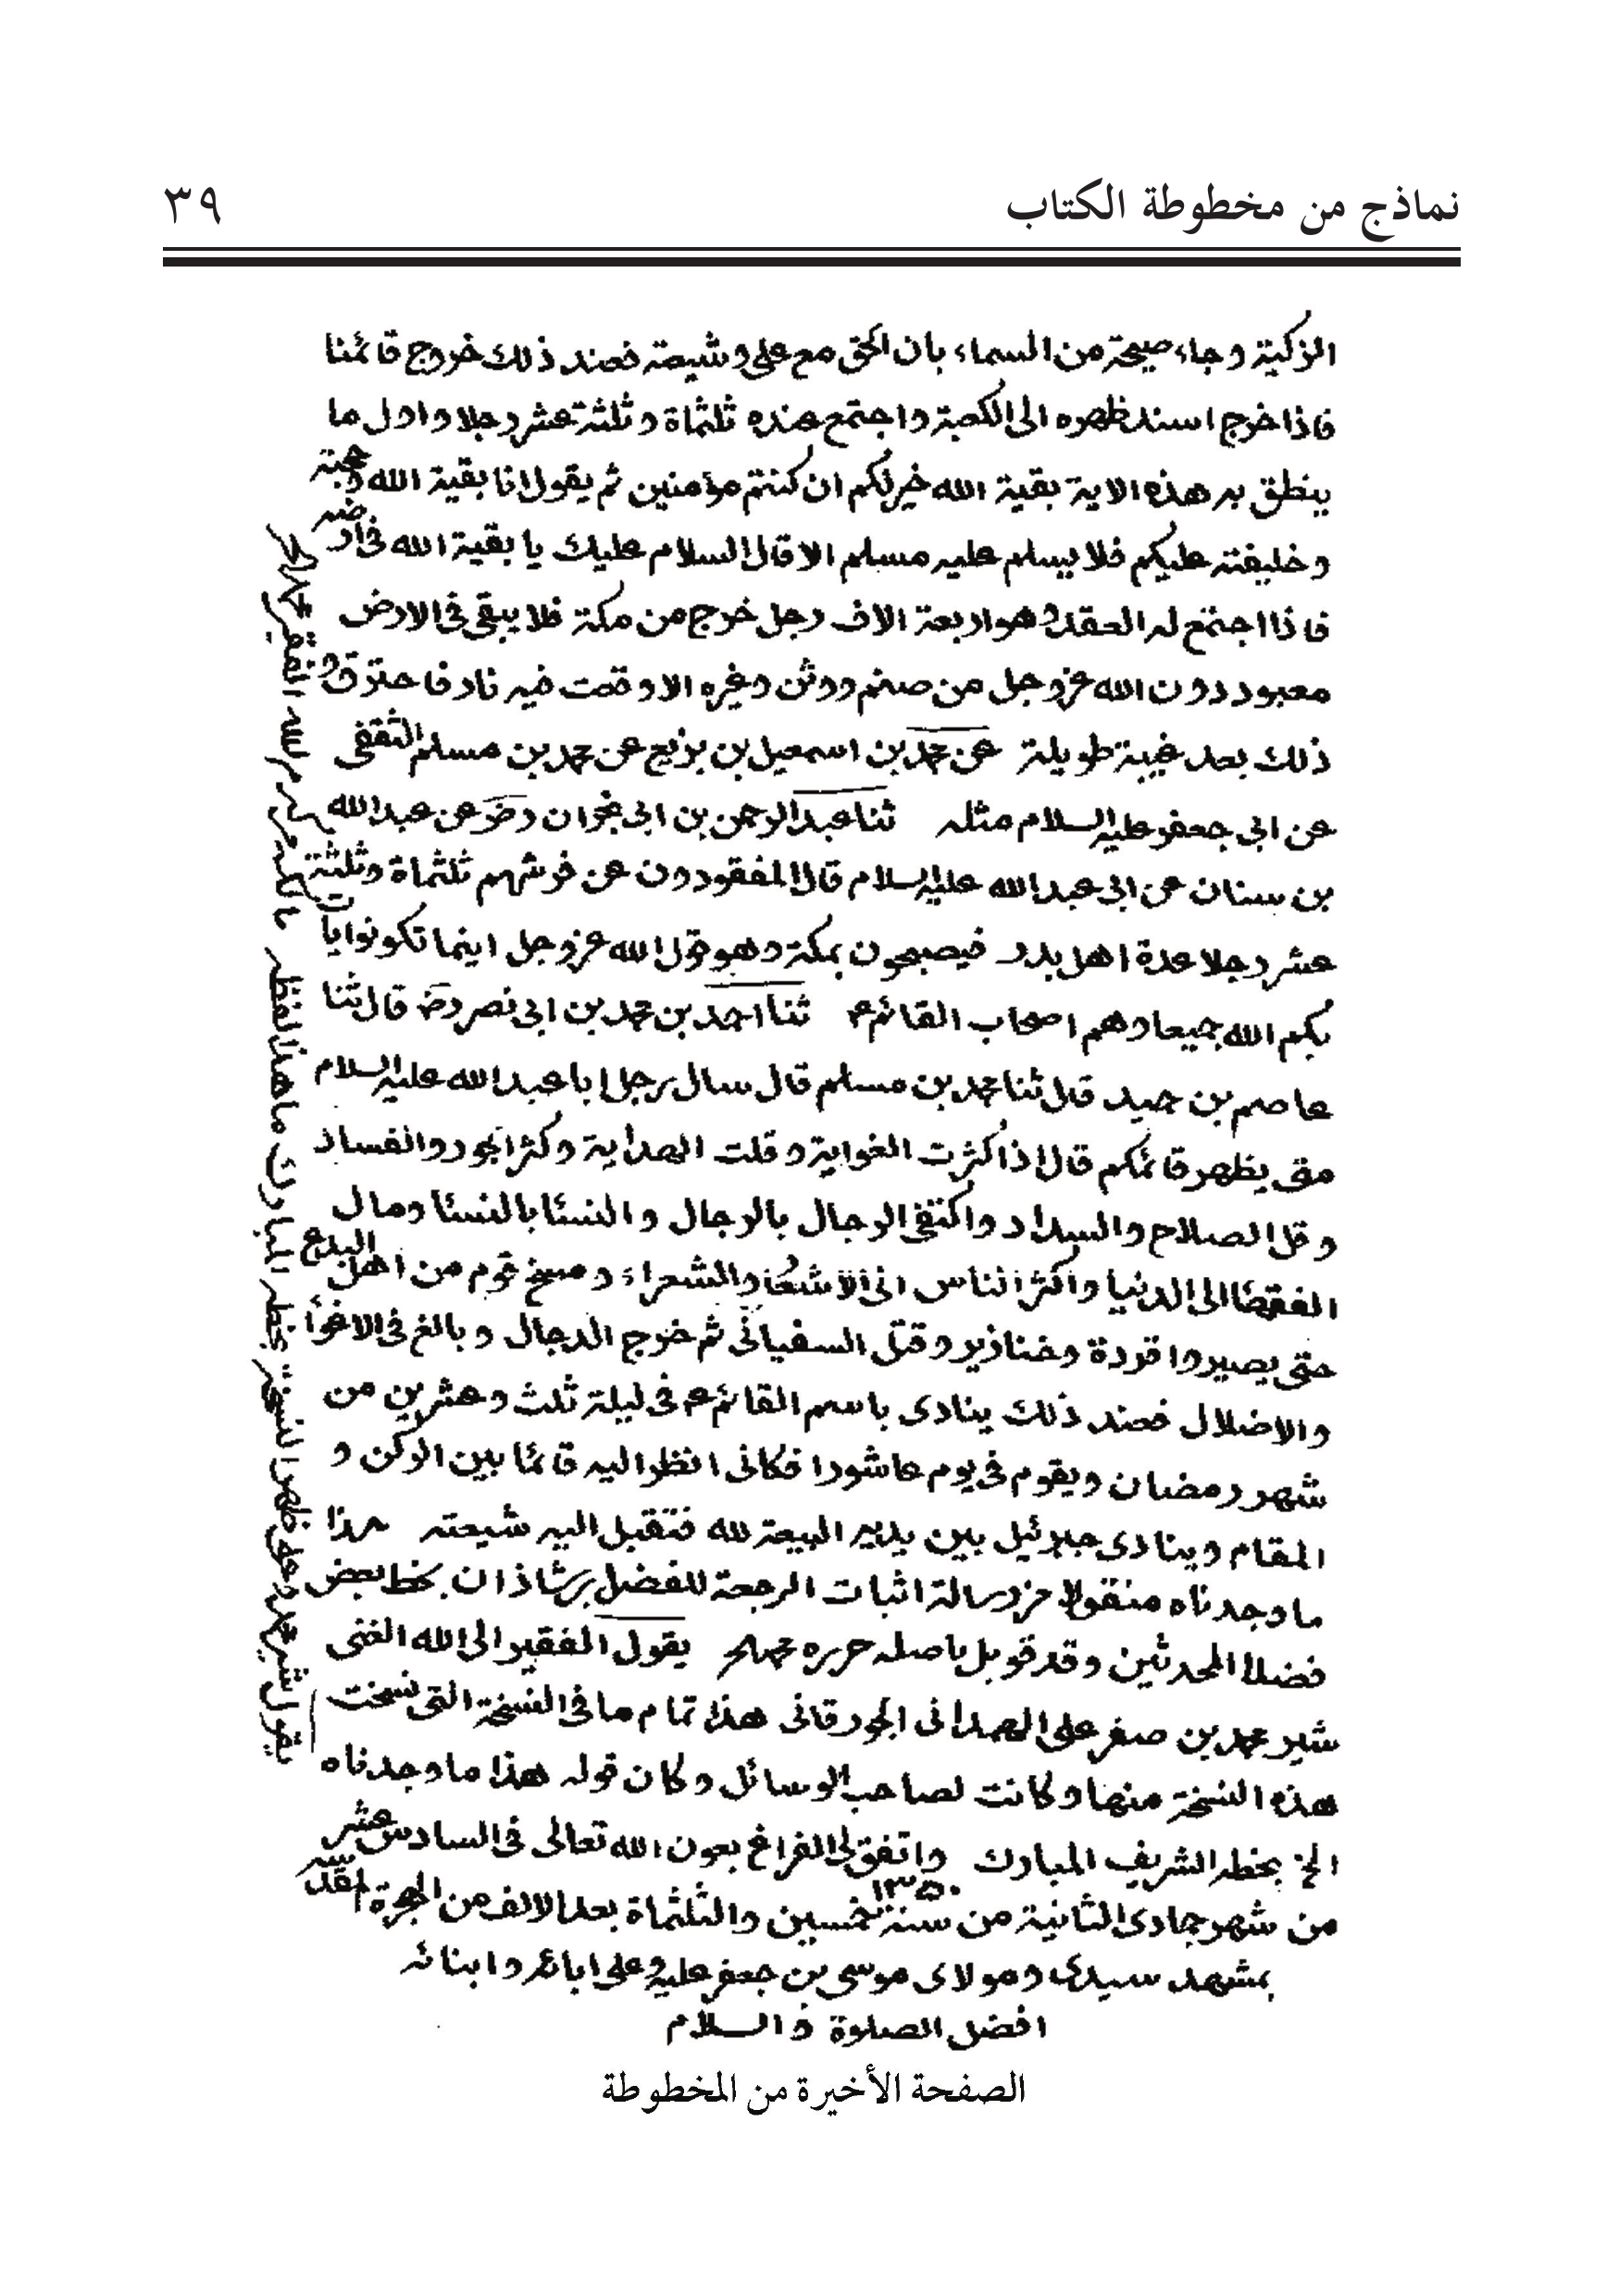 نماذج من مخطوطة الكتاب
٣٩
الزكية وجاء صيحة من السماء بان الحق مع على وشيعته فعند ذلك خروج قائمنا
فاذا خرج اسند ظهره الى الكعبة واجتمع عنده ثلثماة وثلثة عشر رجلا واول ما
ينطق به هذه الاية بقية الله خير لكم ان كنتم مؤمنين ثم يقول انا بقية الله وحجته
وخليفته عليكم فلا يسلم عليه مسلم الا قال السلام عليك يا بقية الله فى ارضه
فاذا اجتمع له العقد وهو اربعة الاف رجل خرج من مكة فلا يبقى فى الارض
معبود دون الله عز وجل من صنم ووثن وغيره الا وقعت فيه نار فاحترق و
ذلك بعد غيبة طويلة عن محمد بن اسمعيل بن بزيع عن محمد بن مسلم الثقفى
عن ابى جعفر عليه السلام مثله ثنا عبد الرحمن بن ابى نجران رض عن عبد الله
بن سنان عن ابى عبد الله عليه السلام قال المفقودون عن فرشهم ثلثماة وثلثة
عشر رجلا عدة اهل بدر فيصبحون بمكة وهو قول الله عز وجل اينما تكونوا يات
بكم الله جميعا وهم اصحاب القائم ع ثنا احمد بن محمد بن ابى نصر رض قال ثنا
عاصم بن حميد قال ثنا محمد بن مسلم قال سال رجل ابا عبد الله عليه السلام
متى يظهر قائمكم قال اذا كثرت الغواية وقلت الهداية وكثر الجور والفساد
وقل الصلاح والسداد واكتفى الرجال بالرجال والنسئا بالنسئا ومال
الفقهئا الى الدنيا واكثر الناس الى الاشعار والشعراء ومسخ قوم من اهل البدع
حتى يصيروا قردة وخنازير وقتل السفيانى ثم خروج الدجال وبالغ فى الاغوأ
والاضلال فعند ذلك ينادى باسم القائم ع فى ليلة ثلث وعشرين من
شهر رمضان ويقوم فى يوم عاشورا فكانى انظر اليه قائمًا بين الركن و
المقام وينادى جبرئيل بين يديه البيعة لله فتقبل اليه شيعته هذا
ما وجدناه منقولا من رسالة اثبات الرجعة للفضل بن شاذان بخط بعض
فضلا المحدثين وقد قوبل باصله حرره محمد الحر يقول الفقير الى الله الغنى
شير محمد بن صفر على الهمدانى الجورقانى هذا تمام ما فى النسخة التى نسخت
هذه النسخة منها وكانت لصاحب الوسائل وكان قوله هذا ما وجدناه
الخ بخطه الشريف المبارك واتفق لى الفراغ بعون الله تعالى فى السادس عشر
من شهر جمادى الثانية من سنة ١٣٥٠ خمسين والثلثماة بعد الالف من الهجرة المقدسه
بمشهد سيدى ومولاى موسى بن جعفر عليه وعلى ابائه وابنائه
افضل الصلوة والسلام
يقول شير محمد وعلى ظهر النسخة بخطه المبارك ما هذا لفظه مالكه محمد الحر
الصفحة الأخيرة من المخطوطة